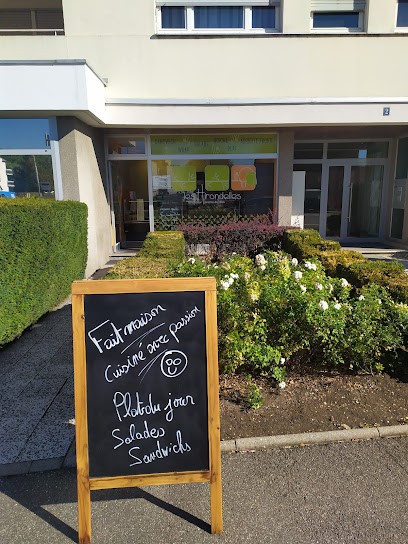 Les Hirondelles
2
Fait maison
Cuisiné avec passion
Plat du jour
Salades
Sandwichs